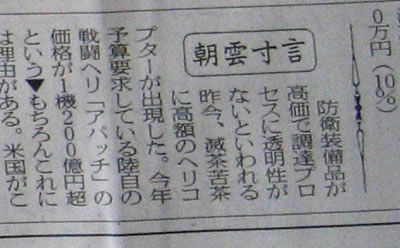 0万円（10%）
朝雲寸言
防衛装備品が
高価で調達プロ
セスに透明性が
ないといわれる
昨今、滅茶苦茶
に高額のヘリコ
プターが出現した。今年
予算要求している陸自の
戦闘ヘリ「アパッチ」の
価格が1機200億円超
という▼もちろんこれに
は理由がある。米国がこ